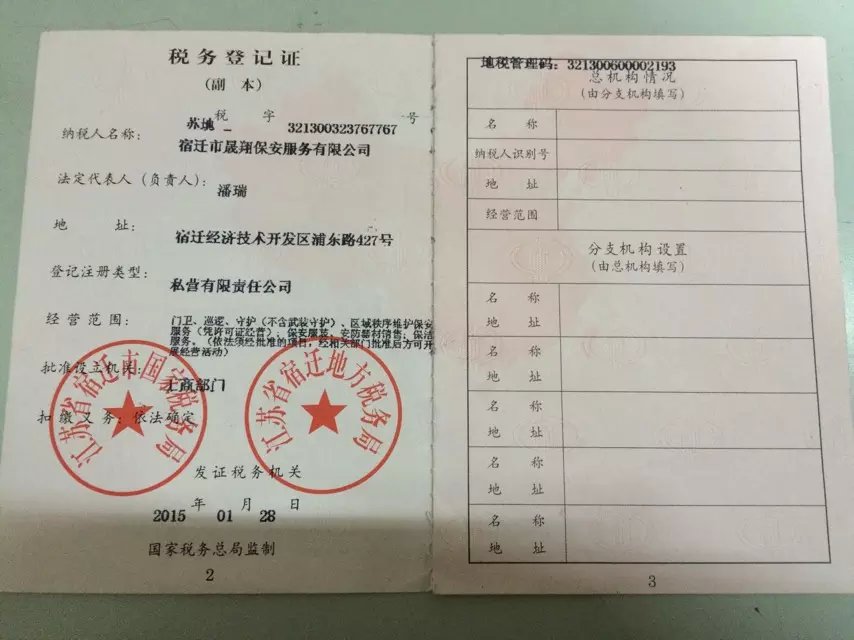 税务登记证
(副 本)
苏地 税 字 321300323767767 号
纳税人名称: 宿迁市晟翔保安服务有限公司
法定代表人(负责人): 潘瑞
地 址: 宿迁经济技术开发区浦东路427号
登记注册类型: 私营有限责任公司
经营范围: 门卫、巡逻、守护(不含武装守护)、区域秩序维护保安
服务(凭许可证经营);保安服装、安防器材销售;保洁
服务。(依法须经批准的项目,经相关部门批准后方可开
展经营活动)
批准设立机关: 工商部门
扣缴义务: 依法确定
江苏省宿迁市国家税务局
江苏省宿迁地方税务局
发证税务机关
2015 年 01 月 28 日
国家税务总局监制
2
地税管理码: 321300600002193
总机构情况
(由分支机构填写)
名 称
纳税人识别号
地 址
经营范围
分支机构设置
(由总机构填写)
名 称
地 址
名 称
地 址
名 称
地 址
名 称
地 址
名 称
地 址
3